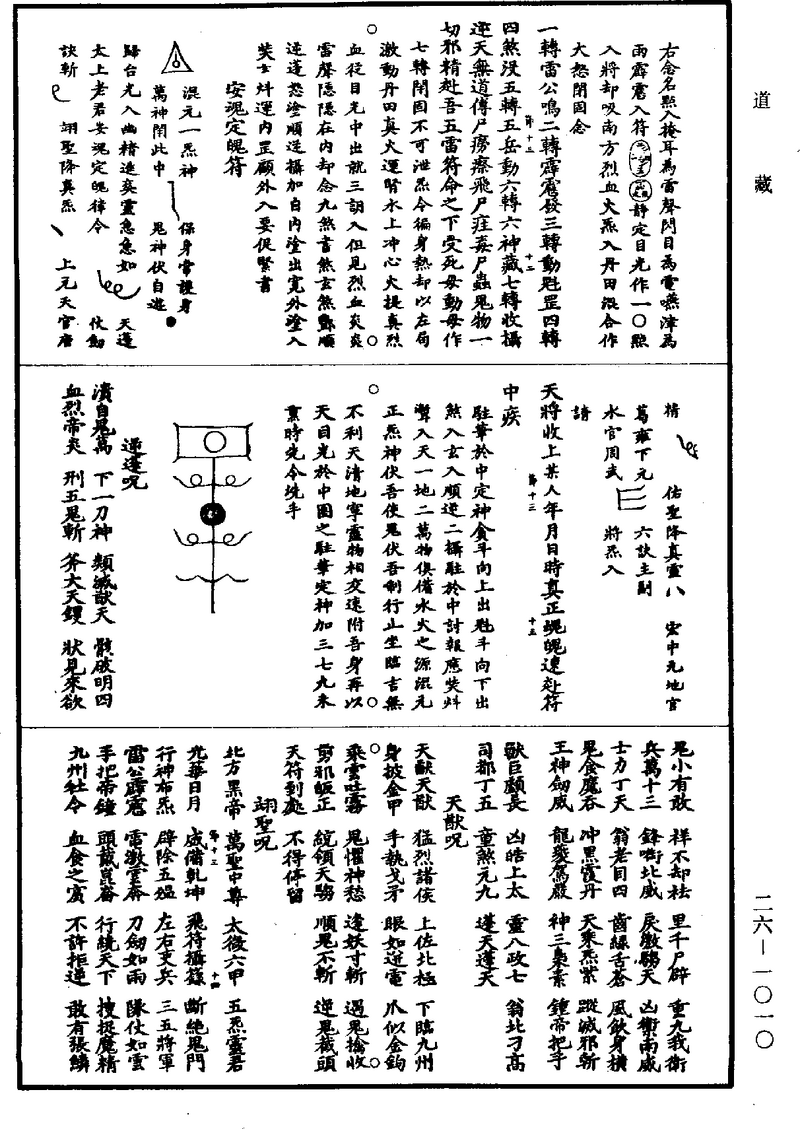 道藏
右念名點入掩耳為雷聲閃目為電嚥津為
雨霹靂入符靜定目光作一〇點
入將却吸南方烈血火炁入丹田混合作
大怒閉固念
一轉雷公鳴二轉霹靂發三轉動魁罡四轉
四煞没五轉五岳動六轉六神藏七轉收攝
逆天無道傳尸癆瘵飛尸疰𤸪尸蟲鬼物一
切邪精赴吾五雷符命之下受死毋動毋作
七轉閉固不可泄炁令徧身熱却以左局
激動丹田真火運腎水上冲心火提真烈
血從目光中出就三詔入但見烈血炎炎
雷聲隱隱在內却念九煞書煞玄煞順
逆逢怒塗順逆攝加自内塗出寬外塗入
筴士炓運内罡顧外入要促緊書
安魂定魄符
混元一炁神 保身常護身
萬神閉此中 鬼神伏自遊
歸台光入幽精進爽靈急急如 天蓬
太上老君安魂定魄律令 仗劒
訣斬 翊聖降真炁 上元天官唐
精 佑聖降真靈 宏中元地官
葛雍下元 六訣主財
水官周武 將炁入
請
天將收上某人年月日時真正魂魄速赴符
中疾
駐筆於中定神貪斗向上出魁斗向下出
煞入玄入順逆二攝駐於中討報應筴炓
聲入天一地二萬物俱備水火之源混元
正炁神伏吾使鬼伏吾制行止坐臨吉無
不利天清地寧靈物相交速附吾身再以
天目光於中圈之駐筆定神加三七九未
熏時先令洗手
逆逢呪
潰自鬼萬 下一刀神 類滅獸天 骸破明四
血烈帝炎 刑五鬼斬 斧大天鑊 狀見來欲
鬼小有敢 祥不却袪 里千尸辟 重九我衛
兵萬十三 鋒㘅北威 戾激騶天 凶衛南威
士力丁天 翁老目四 齒綠舌蒼 風飲身橫
鬼食魔吞 冲黑霞丹 天乘炁紫 蹤滅邪斬
王神劒威 龍夔駕嚴 神三梟素 鍾帝把手
獸巨顱長 凶皓上太 靈八政七 翁北刁高
司都丁五 童煞元九 蓬天蓬天
天猷呪
天猷天猷 猛烈諸侯 上佐北極 下臨九州
身披金甲 手執戈矛 眼如逆電 爪似金鉤
乘雲吐霧 鬼懼神愁 逢妖寸斬 遇鬼擒收
剪邪皈正 統領天騶 順鬼不斬 逆鬼截頭
天符到處 不得停留
翊聖呪
北方黑帝 萬聖中尊 太微六甲 五炁靈君
光華日月 威備乾坤 飛符攝籙 斷絕鬼門
行神布炁 辟除五瘟 左右吏兵 三五將軍
雷公霹靂 電激雲奔 刀劒如雨 隊仗如雲
手把帝鐘 頭戴崑崙 行繞天下 搜捉魔精
九州社令 血食之賓 不許拒逆 敢有張鱗
二六—一〇一〇